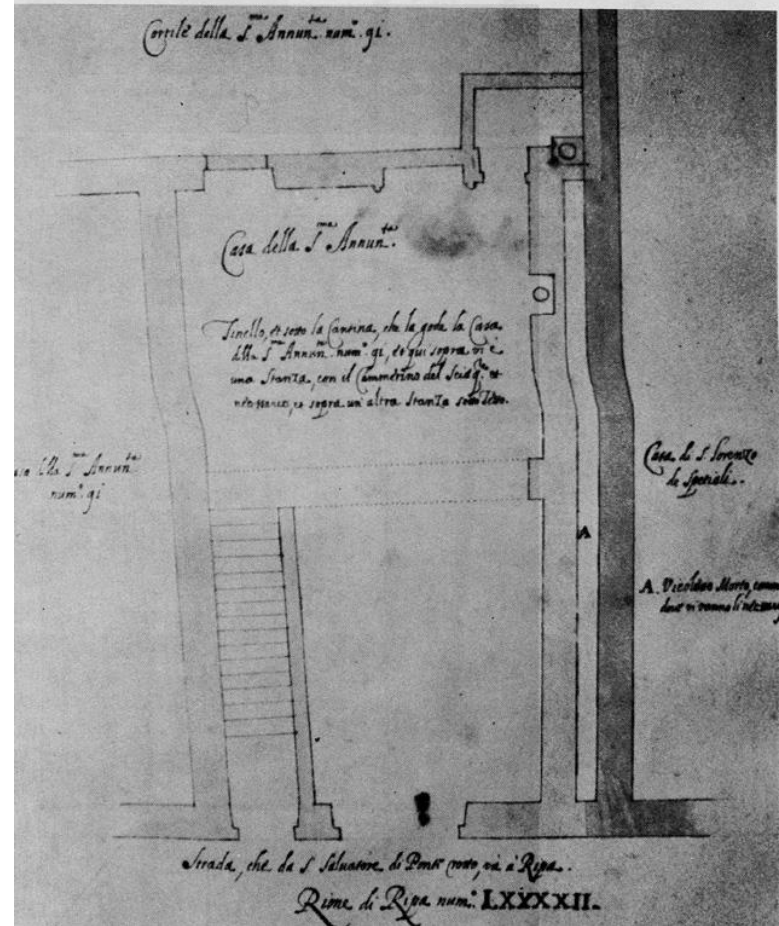 Cortile della S.ma Annun.ta num.o 91.
Casa della S.ma Annun.ta
Tinello, et sotto la Cantina, che la gode la Casa
della S.ma Annun.ta num.o 91, et qui sopra vi è
una stanza, con il Cammerino del
et sopra un'altra stanza
Casa della S.ma Annun.ta
num.o 91
Casa di S. Lorenzo
de Speziali.
A
A. Vicoletto Morto,
dove vi vanno li
Strada, che da S. Salvatore di Ponte rotto, và à Ripa.
Rione di Ripa num.o LXXXXII.